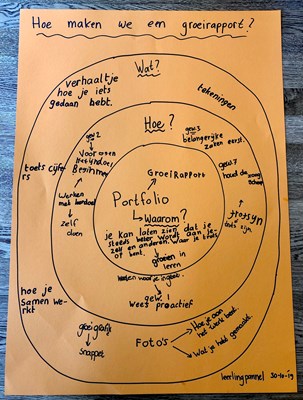 Hoe maken we een groeirapport?
Wat?
verhaaltje
hoe je iets
gedaan hebt.
tekeningen
Hoe?
gew.2
Voor ogen
Beginnen
gew.3
belangrijke
zaken eerst.
toets cijfe
rs
gew.7
houd de zaag
scherp
GroeiRapport
Werken
met
zelf
doen
Portfolio
Waarom?
je kan laten zien dat je
steeds beter wordt aan je-
zelf en anderen. Waar je trots
op bent.
groeien
in
leren
trots zijn
gew.1
wees proactief
hoe je
samen we
rkt
groeigrafiek
snappet
Foto's
Hoe je aan
het werk bent.
Wat je hebt gemaakt.
leerlingpannel 30-10-19